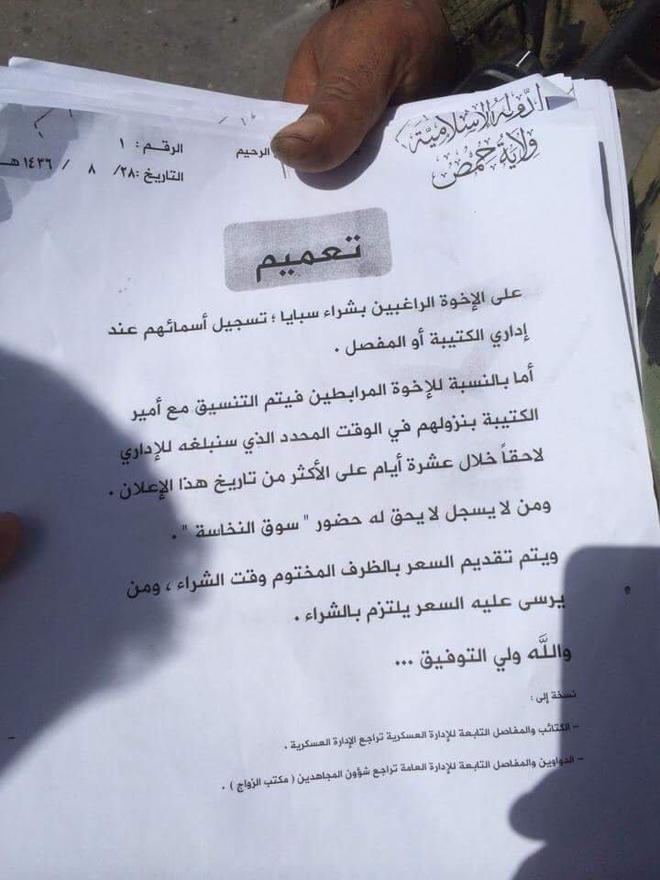 الدولة الإسلامية
ولاية حمص
الرحيم
الرقم: ١
التاريخ: ٢٨/ ٨ / ١٤٣٦ هـ
تعميم
على الإخوة الراغبين بشراء سبايا ؛ تسجيل أسمائهم عند
إداري الكتيبة أو المفصل .
أما بالنسبة للإخوة المرابطين فيتم التنسيق مع أمير
الكتيبة بنزولهم في الوقت المحدد الذي سنبلغه للإداري
لاحقاً خلال عشرة أيام على الأكثر من تاريخ هذا الإعلان .
ومن لا يسجل لا يحق له حضور " سوق النخاسة " .
ويتم تقديم السعر بالظرف المختوم وقت الشراء ، ومن
يرسى عليه السعر يلتزم بالشراء .
واللَّه ولي التوفيق ...
نسخة إلى :
– الكتائب والمفاصل التابعة للإدارة العسكرية تراجع الإدارة العسكرية .
– الدواوين والمفاصل التابعة للإدارة العامة تراجع شؤون المجاهدين ( مكتب الزواج ) .